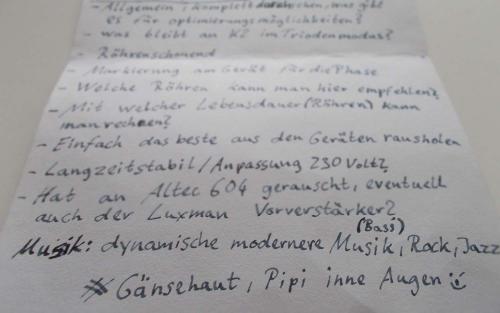 - Allgemein, komplett durchsehen, was gibt
es für optimierungsmöglichkeiten?
- was bleibt an K2 im Triodenmodus?
- Röhrenschonend
- Markierung am Gerät für die Phase
- Welche Röhren kann man hier empfehlen?
- Mit welcher Lebensdauer (Röhren) kann
man rechnen?
- Einfach das beste aus den Geräten rausholen
- Langzeitstabil / Anpassung 230 Volt?
- Hat an Altec 604 gerauscht, eventuell
auch der Luxman Vorverstärker?
(Bass)
Musik: dynamische modernere Musik, Rock, Jazz
Gänsehaut, Pipi inne Augen :)